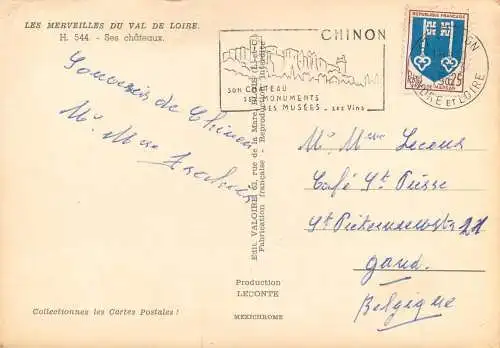 LES MERVEILLES DU VAL DE LOIRE.
H. 544. - Ses châteaux.
Souvenir de Chinon
Mr Mme
CHINON
SON CHATEAU
SES MONUMENTS
SES MUSÉES - SES VINS
REPUBLIQUE FRANÇAISE
0.25
INDRE ET LOIRE
Edit. VALOIRE, 61, rue de la Mare, BLOIS (L.-et-C.)
Fabrication française - Reproduction interdite
Mr Mme Lecens
Café St Pierre
St Pieternieuwstr 21
Gand.
Belgique
Production
LECONTE
MEXICHROME
Collectionnez les Cartes Postales !